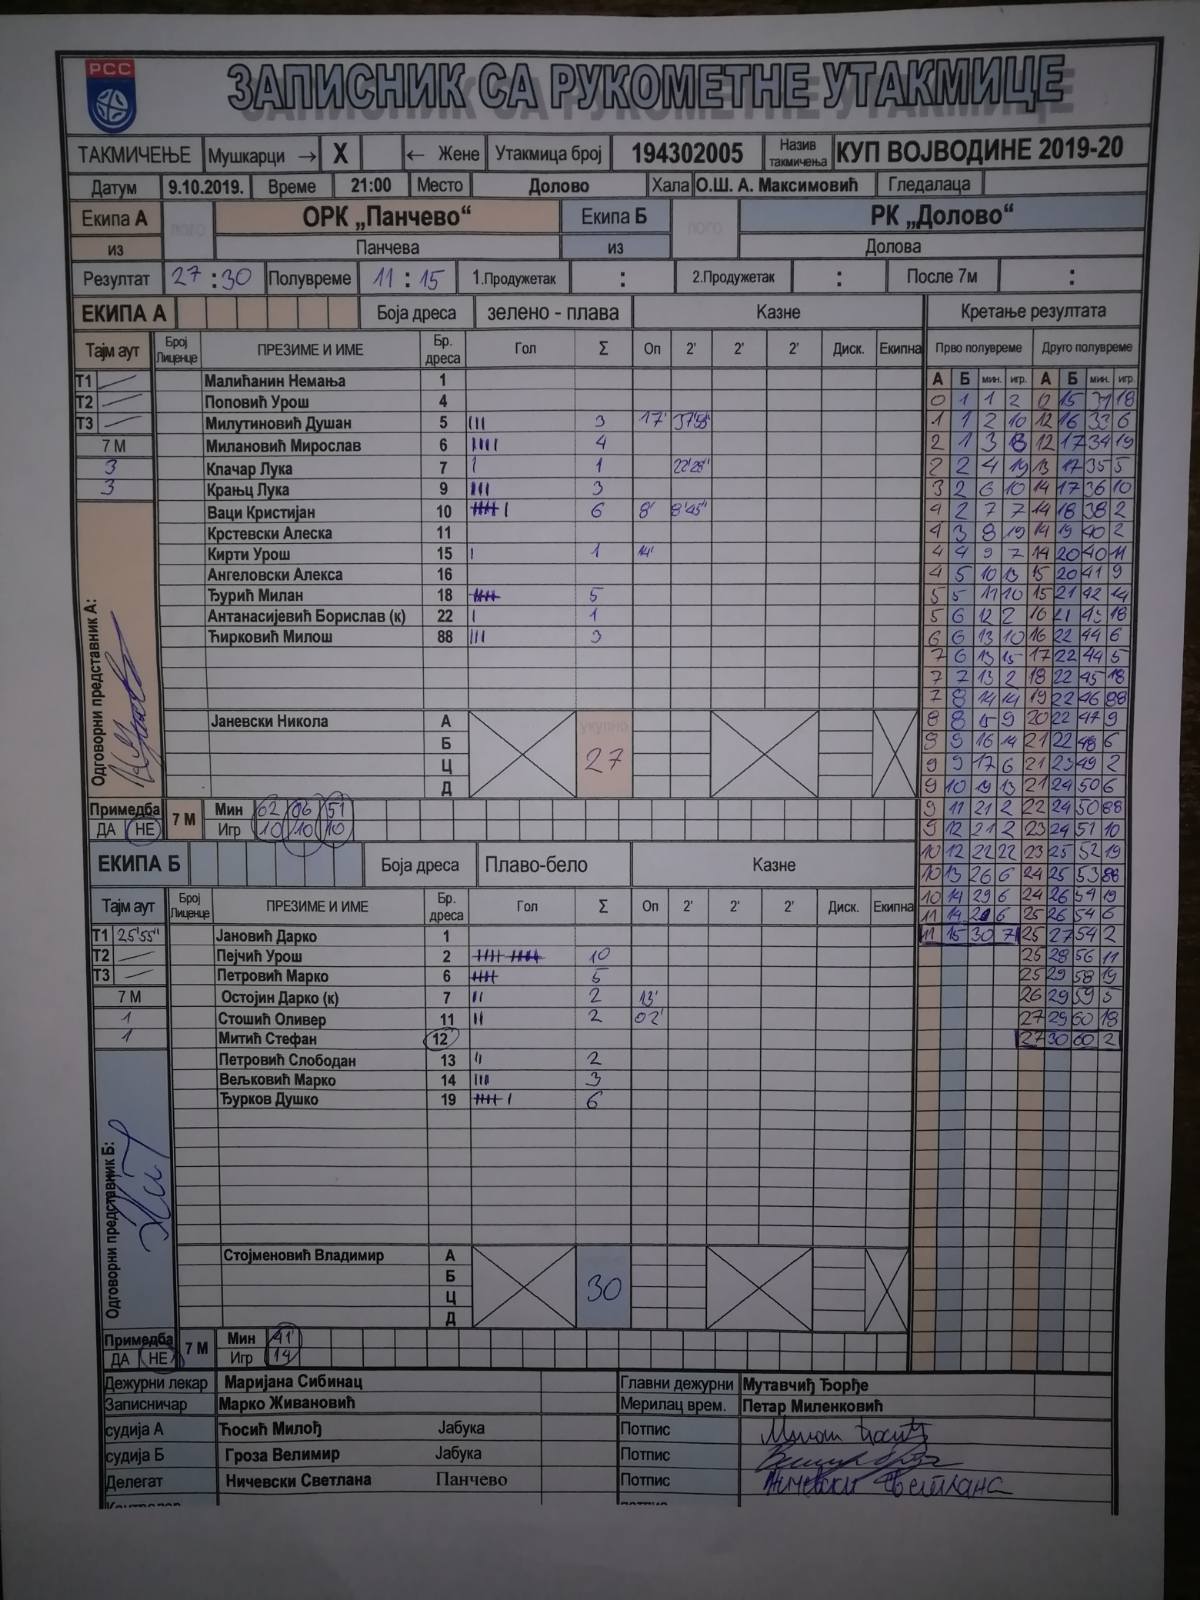 РСС
ЗАПИСНИК СА РУКОМЕТНЕ УТАКМИЦЕ
ТАКМИЧЕЊЕ Мушкарци → X ← Жене Утакмица број 194302005 Назив такмичења КУП ВОЈВОДИНЕ 2019-20
Датум 9.10.2019. Време 21:00 Место Долово Хала О.Ш. А. Максимовић Гледалаца
Екипа А ОРК „Панчево“ Екипа Б РК „Долово“
из Панчева из Долова
Резултат 27:30 Полувреме 11:15 1.Продужетак : 2.Продужетак : После 7м :
ЕКИПА А Боја дреса зелено - плава Казне Кретање резултата
Тајм аут Број Лиценце ПРЕЗИМЕ И ИМЕ Бр. дреса Гол Σ Оп 2' 2' 2' Диск. Екипна Прво полувреме Друго полувреме
А Б мин. игр. А Б мин. игр.
Т1 Малићанин Немања 1
Т2 Поповић Урош 4
Т3 Милутиновић Душан 5 III 3 17' 37'58"
7 М Милановић Мирослав 6 IIII 4
3 Клачар Лука 7 I 1 22'28"
3 Крањц Лука 9 III 3
Ваци Кристијан 10 IIIII I 6 8' 8'45"
Крстевски Алеска 11
Кирти Урош 15 I 1 14'
Ангеловски Алекса 16
Ђурић Милан 18 IIIII 5
Антанасијевић Борислав (к) 22 I 1
Ћирковић Милош 88 III 3
Одговорни представник А:
Јаневски Никола А
Б
Ц
Д
укупно
27
Примедба ДА НЕ 7 М Мин 02 06 51
Игр 10 10 10
0 1 1 2
1 1 2 10 12 16 33 6
2 1 3 18 12 17 34 19
2 2 4 19 13 17 35 5
3 2 6 10 14 17 36 10
4 2 7 7 14 18 38 2
4 3 8 19 14 19 40 2
4 4 9 7 14 20 40 11
4 5 10 13 15 20 41 9
5 5 11 10 15 21 42 14
5 6 12 2 16 21 43 18
6 6 13 10 16 22 44 6
7 6 13 15 17 22 44 5
7 7 13 2 18 22 45 18
7 8 14 14 19 22 46 88
8 8 15 9 20 22 47 9
9 9 16 14 21 22 48 6
9 9 17 6 21 23 49 2
9 10 19 13 21 24 50 6
9 11 21 2 22 24 50 88
9 12 21 2 23 24 51 10
10 12 22 22 23 25 52 19
10 13 26 6 24 25 53 88
10 14 29 6 24 26 54 19
11 14 29 6 25 26 54 6
11 15 30 7 25 27 54 2
25 28 56 11
25 29 58 19
26 29 59 5
27 29 60 18
27 30 60 2
ЕКИПА Б Боја дреса Плаво-бело Казне
Тајм аут Број Лиценце ПРЕЗИМЕ И ИМЕ Бр. дреса Гол Σ Оп 2' 2' 2' Диск. Екипна
Т1 25'55" Јановић Дарко 1
Т2 Пејчић Урош 2 IIIII IIIII 10
Т3 Петровић Марко 6 IIIII 5
7 М Остојин Дарко (к) 7 II 2 13'
1 Стошић Оливер 11 II 2 02'
1 Митић Стефан 12
Петровић Слободан 13 II 2
Вељковић Марко 14 III 3
Ђурков Душко 19 IIIII I 6
Одговорни представник Б:
Стојменовић Владимир А
Б
Ц
Д
30
Примедба ДА НЕ 7 М Мин 41'
Игр 14
Дежурни лекар Маријана Сибинац Главни дежурни Мутавчић Ђорђе
Записничар Марко Живановић Мерилац врем. Петар Миленковић
судија А Ћосић Милођ Јабука Потпис
судија Б Гроза Велимир Јабука Потпис
Делегат Ничевски Светлана Панчево Потпис Ничевски Светлана